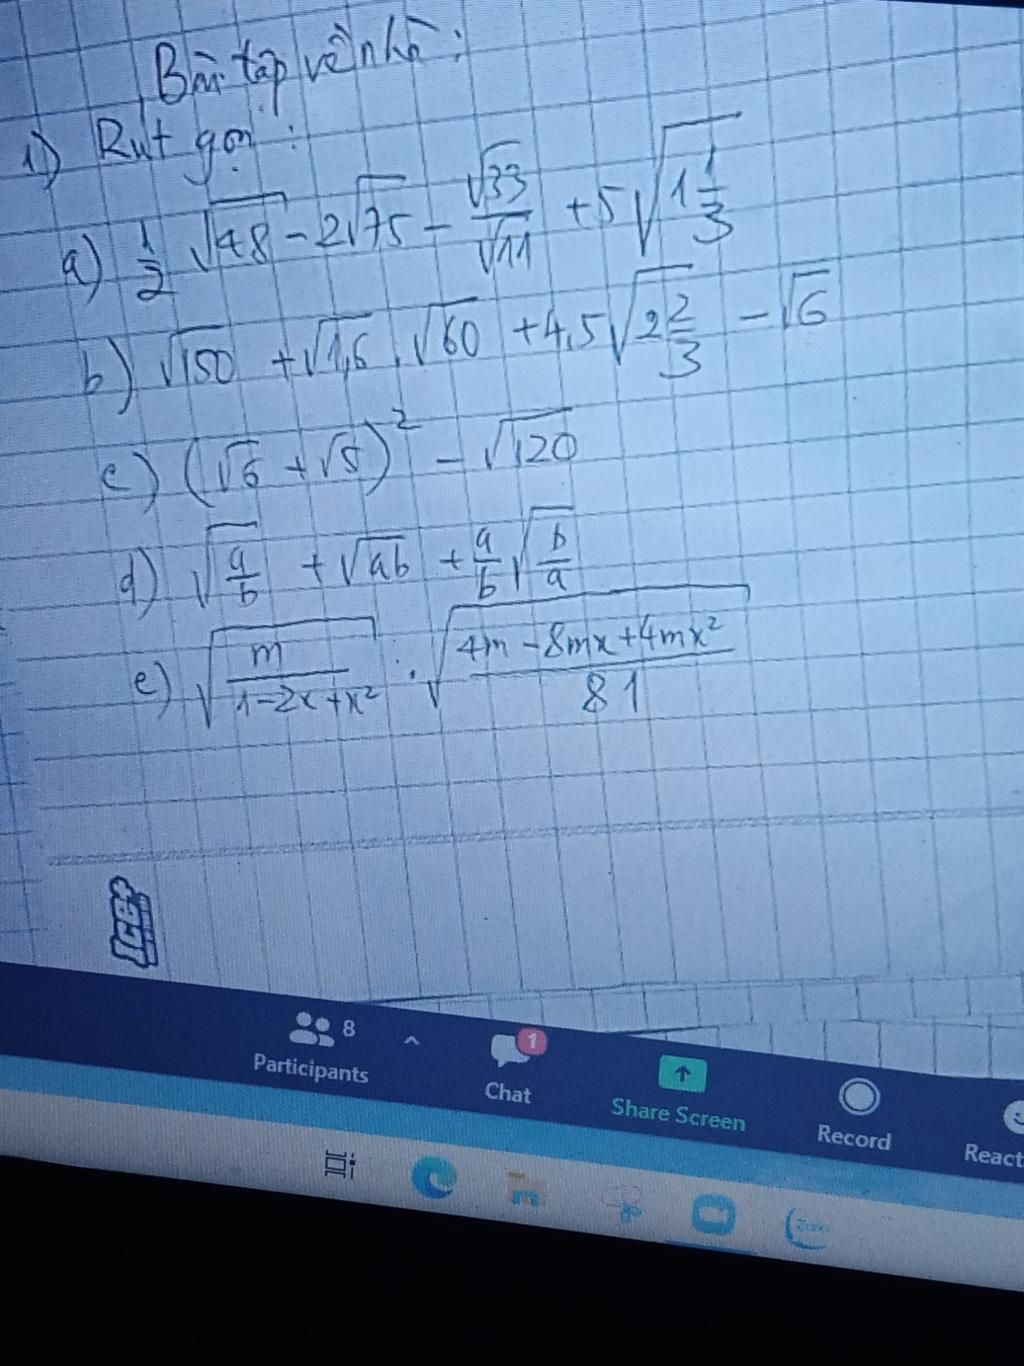 Bài tập về nhà:
1) Rút gọn:
a) 1/2 √48 - 2√75 - √33/√11 + 5√(1 1/3)
b) √150 + √1,6 . √60 + 4,5√(2 2/3) - √6
c) (√6 + √5)² - √120
d) √(a/b) + √ab + a/b √(b/a)
e) √(m/(1-2x+x²)) . √((4m-8mx+4mx²)/81)
8
Participants
1
Chat
Share Screen
Record
React